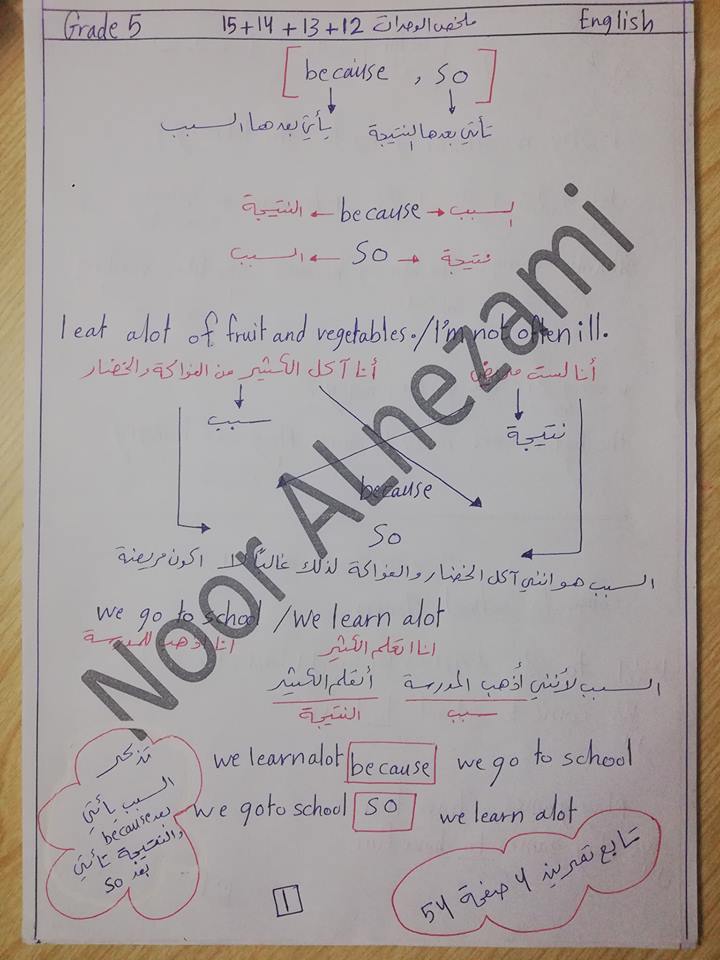 Grade 5 ملخص الوحدات 12+13+14+15 English
because , so
يأتي بعدها السبب تأتي بعدها النتيجة
النتيجة ← because → السبب
السبب ← so → نتيجة
I eat alot of fruit and vegetables. / I'm not often ill.
أنا آكل الكثير من الفواكة والخضار أنا لست مريض
سبب نتيجة
because
so
السبب هو انني آكل الخضار والفواكة لذلك غالبًا لا اكون مريضة
we go to school / we learn alot
انا اذهب للمدرسة انا اتعلم الكثير
السبب لأنني أذهب المدرسة أتعلم الكثير
سبب النتيجة
we learn alot because we go to school
we go to school so we learn alot
تذكر
السبب يأتي
بعد because
والنتيجة تأتي
بعد so
تابع تمرين 4 صفحة 54
1
Noor ALnezami